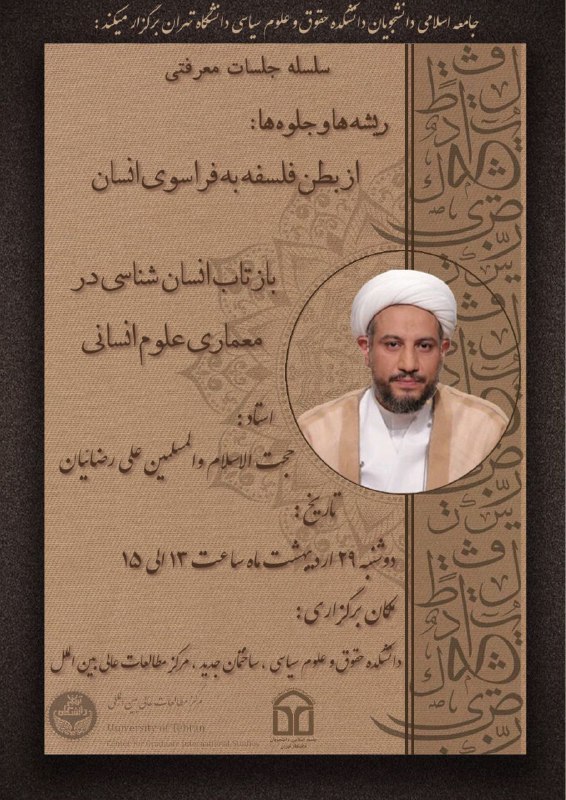 جامعه اسلامی دانشجویان دانشکده حقوق و علوم سیاسی دانشگاه تهران برگزار میکند :
سلسله جلسات معرفتی
ریشه ها و جلوه ها:
از بطن فلسفه به فراسوی انسان
بازتاب انسان شناسی در
معماری علوم انسانی
استاد :
حجت الاسلام والمسلمین علی رضائیان
تاریخ :
دوشنبه ۲۹ اردیبهشت ماه ساعت ۱۳ الی ۱۵
مکان برگزاری :
دانشکده حقوق و علوم سیاسی ، ساختمان جدید ، مرکز مطالعات عالی بین الملل
مرکز مطالعات عالی بین المللی
University of Tehran
Center for Graduate International Studies
جامعه اسلامی دانشجویان
دانشگاه تهران